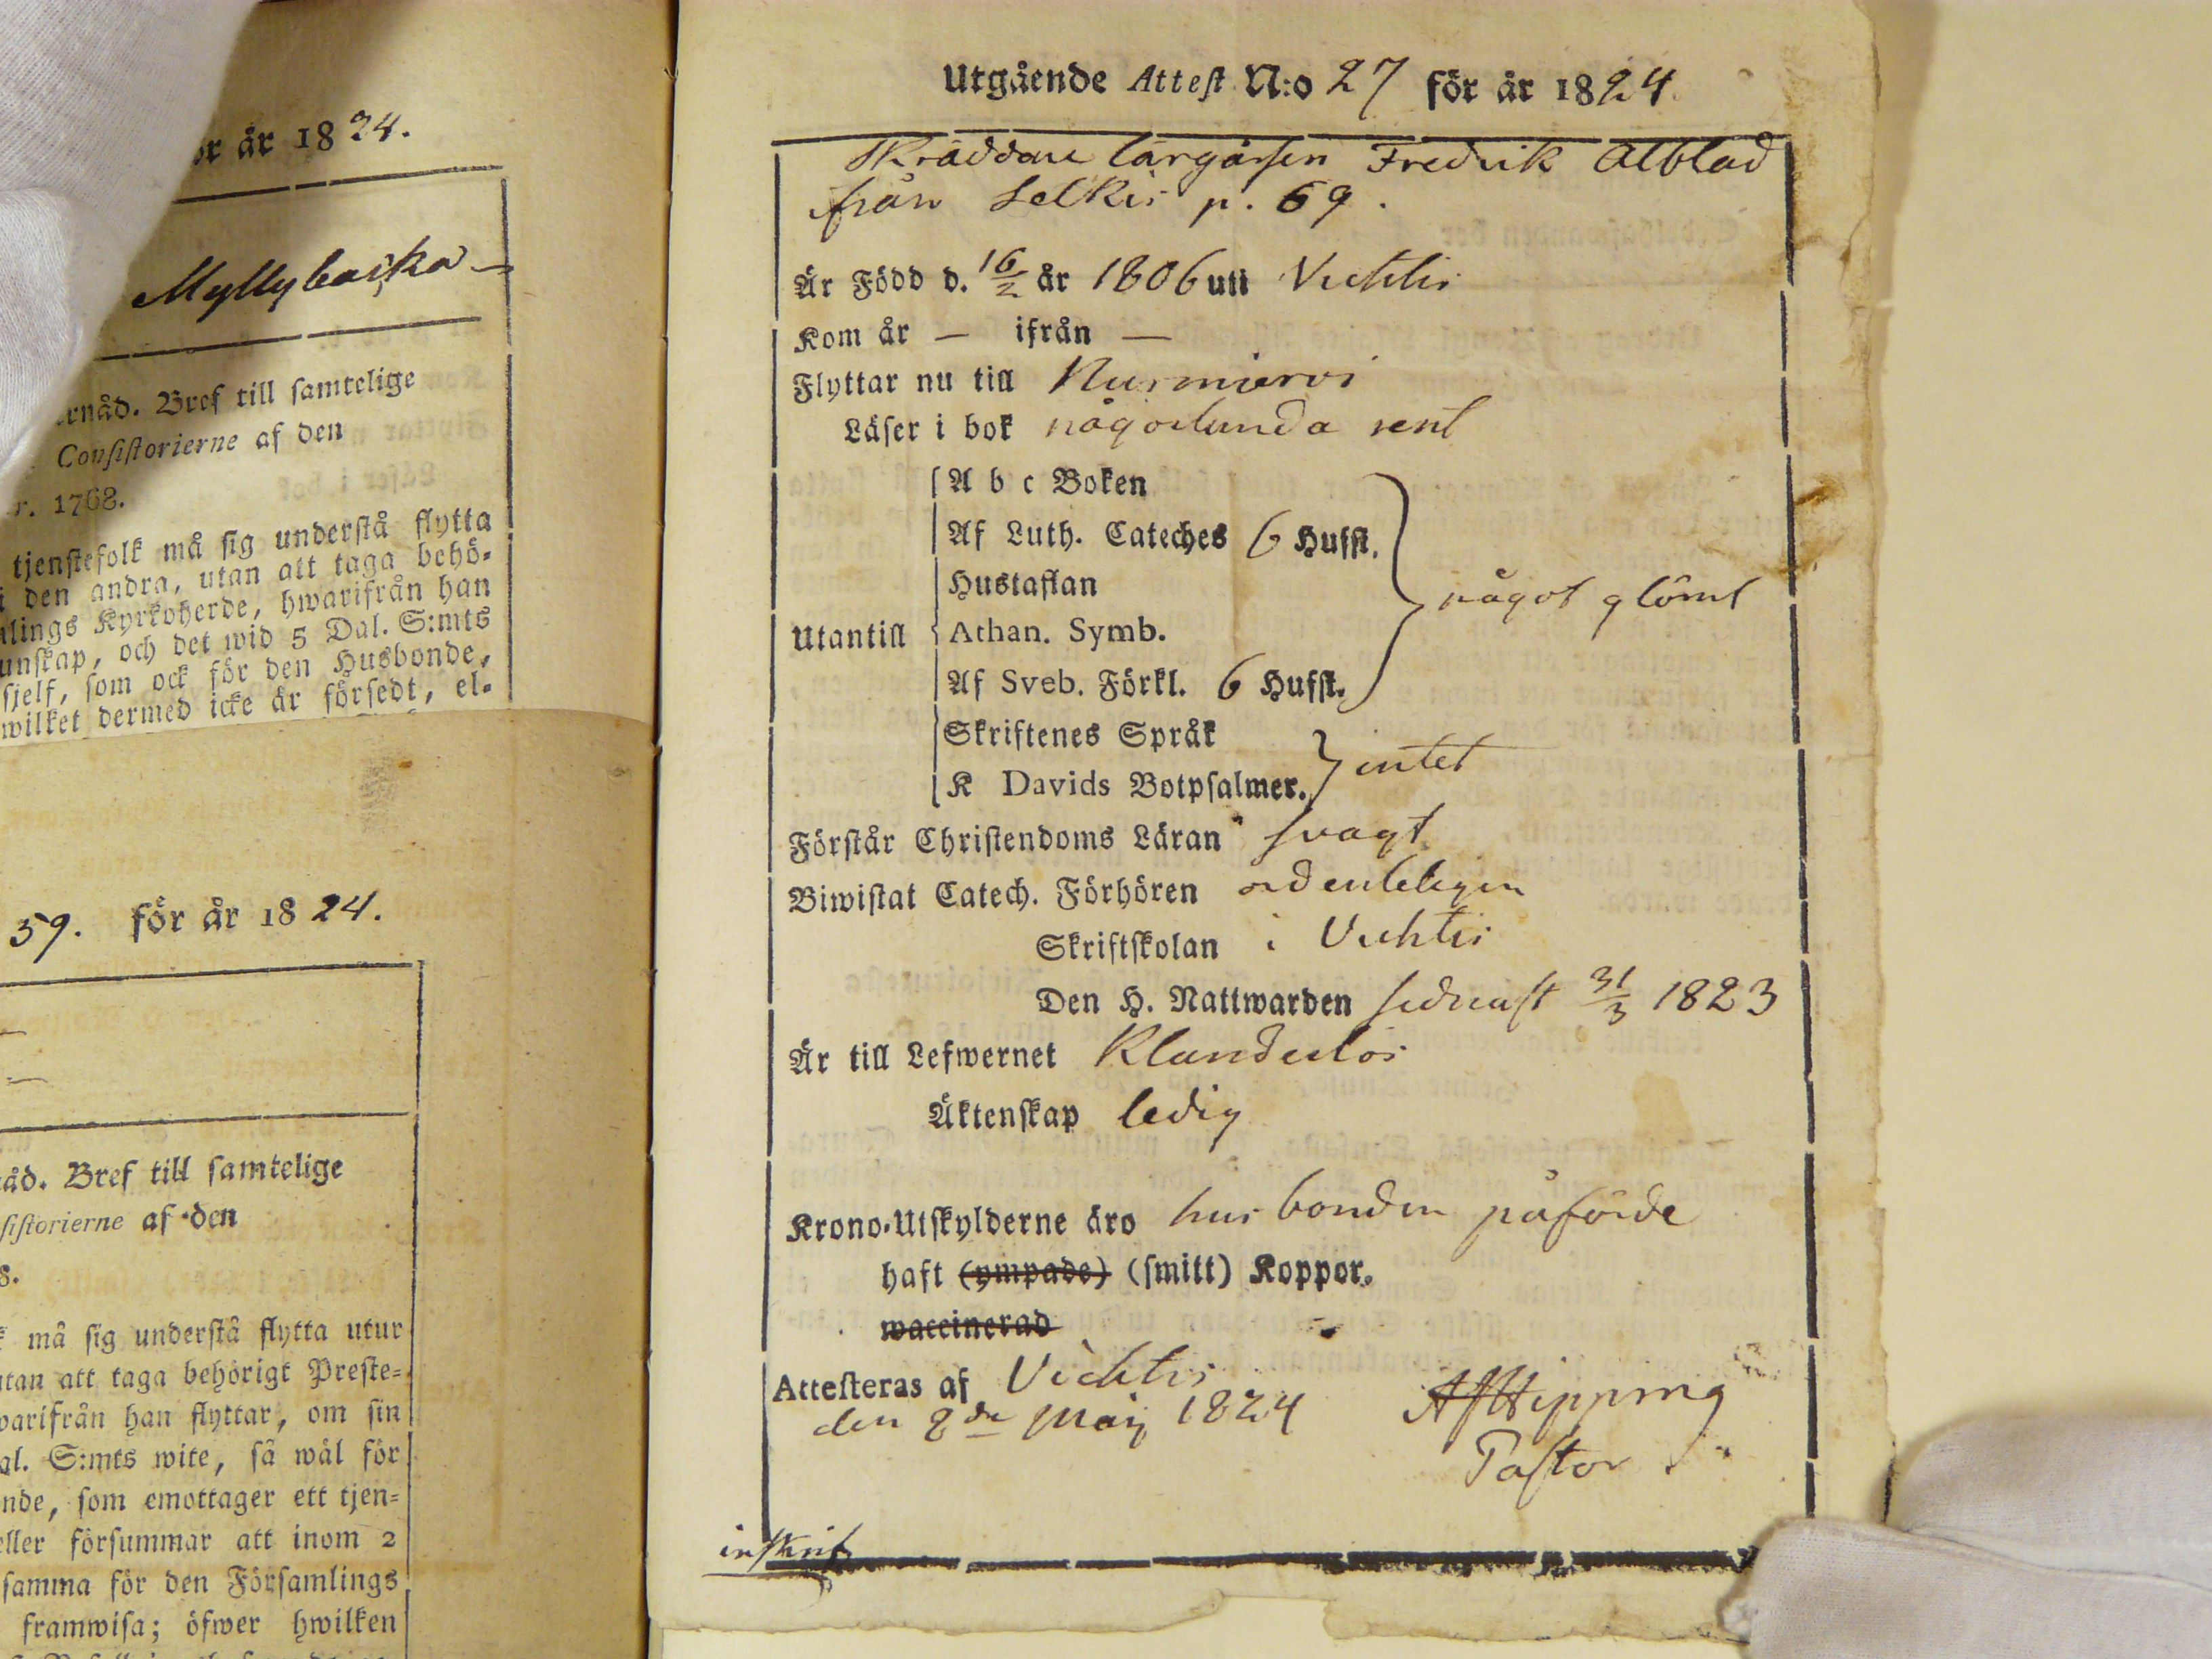 år 1824.
Myllybacka
Bref till samtelige
Consistorierne af den
1768.
tjenstefolk må sig understå flytta
den andra, utan att taga behö-
Kyrkoherde, hwarifrån han
och det wid 5 Dal. S:mts
sjelf, som ock för den Husbonde,
dermed icke är försedt, el-
59. för år 1824.
Bref till samtelige
af den
må sig understå flytta utur
att taga behörigt Preste-
han flyttar, om sin
S:mts wite, så wäl för
som emottager ett tjen-
försummar att inom 2
samma för den Församlings
framwisa; öfwer hwilken
Utgående Attest N:o 27 för år 1824
Skräddare lärgåssen Fredrik Alblad
från Selkis p. 69.
Är Född d. 16/2 år 1806 uti Vichtis
Kom år — ifrån —
Flyttar nu till Nurmiervi
Läser i bok någorlunda rent
A b c Boken
Af Luth. Cateches 6 Hufst.
Hustaflan
något glömt
Utantill
Athan. Symb.
Af Sveb. Förkl. 6 Hufst.
Skriftenes Språk
K Davids Botpsalmer.
intet
Förstår Christendoms Läran svagt
Biwistat Catech. Förhören ordenteligen
Skriftskolan i Vichtis
Den H. Nattwarden sednast 31/3 1823
Är till Lefwernet Klanderlös
Äktenskap ledig
Krono-Utskylderne äro husbonden påförde
haft (ympade) (smitt) Koppor.
waccinerad
Attesteras af Vichtis
den 8de Maij 1824
AJHipping
Pastor
inskrifv